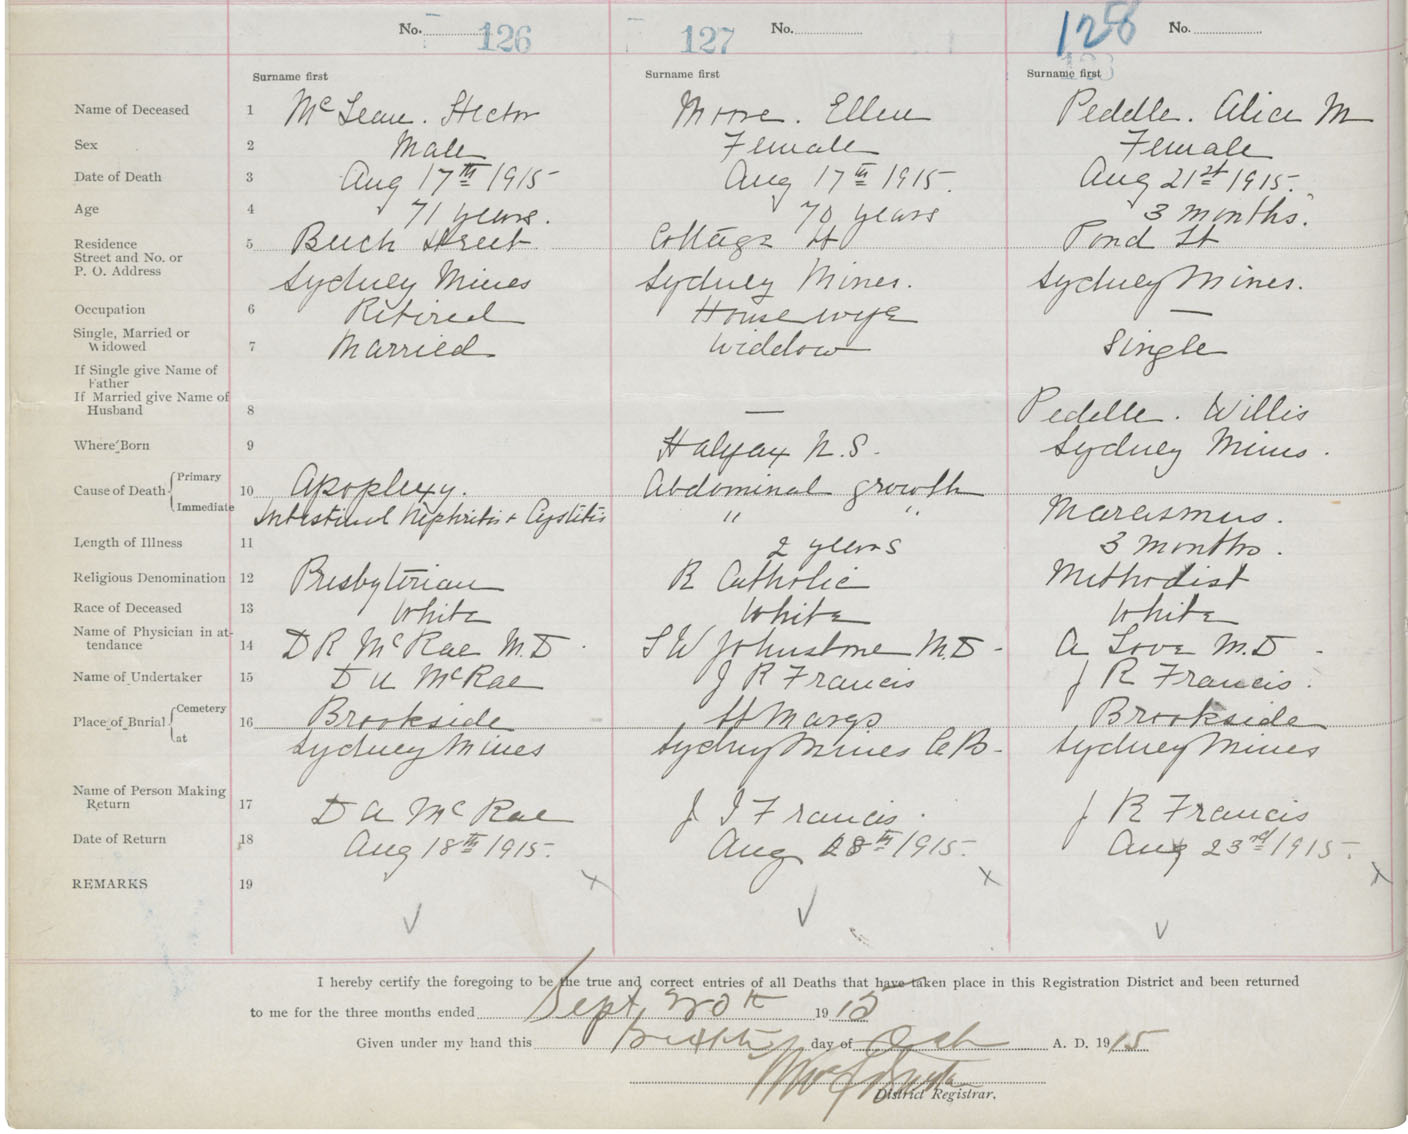 No. 126 127 No. 128 No.
Surname first Surname first Surname first
Name of Deceased 1 McLean. Hector Moore. Ellen Pedelle. Alice M
Sex 2 Male Female Female
Date of Death 3 Aug 17th 1915 Aug 17th 1915. Aug 21st 1915.
Age 4 71 years. 70 years 3 months.
Residence 5 Beech Street Cottage St Pond St
Street and No. or
P. O. Address Sydney Mines Sydney Mines. Sydney Mines.
Occupation 6 Retired House wife —
Single, Married or
Widowed 7 Married Widdow Single
If Single give Name of
Father
If Married give Name of
Husband 8 — Pedelle. Willis
Where Born 9 Halifax N.S. Sydney Mines.
Cause of Death Primary 10 Apoplexy. Abdominal growth
Immediate Intestinal Nephritis + Cystitis " " Marasmus.
Length of Illness 11 2 years 3 months.
Religious Denomination 12 Presbyterian R Catholic Methodist
Race of Deceased 13 White White White
Name of Physician in at-
tendance 14 D R McRae M.D. S W Johnstone M.D. A Love M.D.
Name of Undertaker 15 D A McRae J R Francis J R Francis.
Place of Burial Cemetery 16 Brookside St Margs Brookside
at Sydney Mines Sydney Mines C.B. Sydney Mines
Name of Person Making
Return 17 D A McRae J J Francis. J R Francis
Date of Return 18 Aug 18th 1915. Aug 28th 1915. Aug 23rd 1915.
REMARKS 19
I hereby certify the foregoing to be the true and correct entries of all Deaths that have taken place in this Registration District and been returned
to me for the three months ended Sept 30th 1915
Given under my hand this day of A. D. 1915
District Registrar.